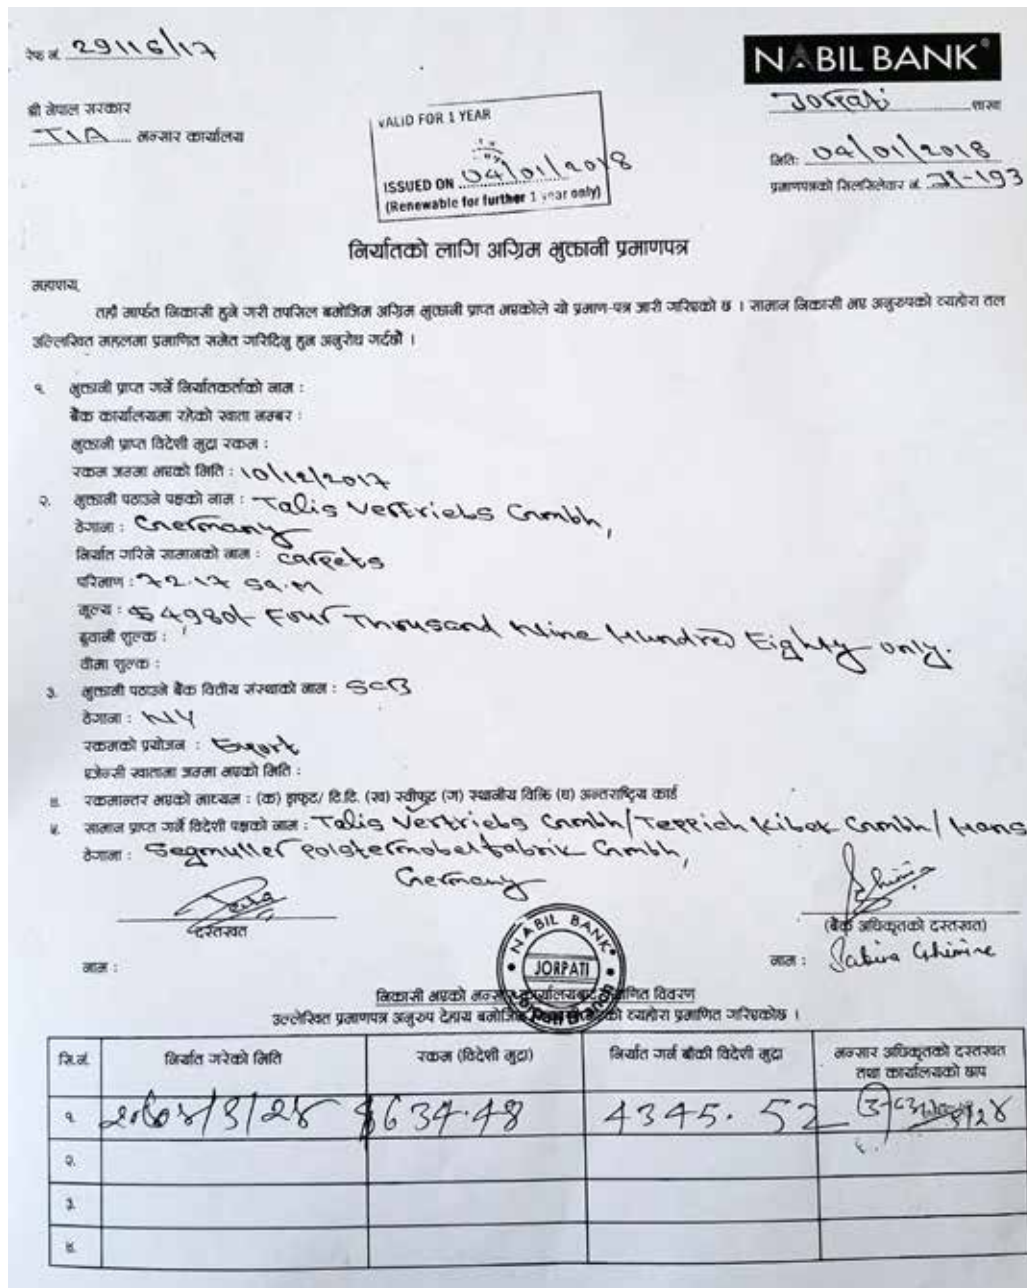 रेफ नं. 29116/17
NABIL BANK
Jorpati शाखा
श्री नेपाल सरकार
TIA भन्सार कार्यालय
VALID FOR 1 YEAR
ISSUED ON 04/01/2018
(Renewable for further 1 year only)
मिति: 04/01/2018
प्रमाणपत्रको सिलसिलेवार नं.
निर्यातको लागि अग्रिम भुक्तानी प्रमाणपत्र
महाशय,
तहाँ मार्फत निकासी हुने गरी तपसिल बमोजिम अग्रिम भुक्तानी प्राप्त भएकोले यो प्रमाण-पत्र जारी गरिएको छ । सामान निकासी भए अनुरुपको व्यहोरा तल
उल्लिखित महलमा प्रमाणित समेत गरिदिनु हुन अनुरोध गर्दछौं ।
१. भुक्तानी प्राप्त गर्ने निर्यातकर्ताको नाम :
बैंक कार्यालयमा रहेको खाता नम्बर :
भुक्तानी प्राप्त विदेशी मुद्रा रकम :
रकम जम्मा भएको मिति : 10/12/2017
२. भुक्तानी पठाउने पक्षको नाम : Talis Vertriebs Gmbh,
ठेगाना : Germany
निर्यात गरिने सामानको नाम : carpets
परिमाण : 72.17 sq.m
मूल्य : $ 4980/- Four Thousand Nine Hundred Eighty only.
ढुवानी शुल्क :
वीमा शुल्क :
३. भुक्तानी पठाउने बैंक वितीय संस्थाको नाम : SCB
ठेगाना : NY
रकमको प्रयोजन : Export
एजेन्सी खातामा जम्मा भएको मिति :
४. रकमान्तर भएको माध्यम : (क) ड्राफ्ट/ टि.टि. (ख) स्वीफ्ट (ग) स्थानीय विक्रि (घ) अन्तराष्ट्रिय कार्ड
५. सामान प्राप्त गर्ने विदेशी पक्षको नाम : Talis Vertriebs Gmbh/Teppich Kibek Gmbh/ Hans
ठेगाना : Segmuller Polstermobelfabrik Gmbh,
Germany
दस्तखत
(बैंक अधिकृतको दस्तखत)
नाम :
NABIL BANK
JORPATI
नाम : Sabina Ghimire
निकासी भएको भन्सार कार्यालयबाट प्रमाणित विवरण
उल्लेखित प्रमाणपत्र अनुरुप देहाय बमोजिम को व्यहोरा प्रमाणित गरिएकोछ ।
सि.नं. निर्यात गरेको मिति रकम (विदेशी मुद्रा) निर्यात गर्न बाँकी विदेशी मुद्रा भन्सार अधिकृतको दस्तखत
तथा कार्यालयको छाप
१. $634.48 4345.52
२.
३.
४.